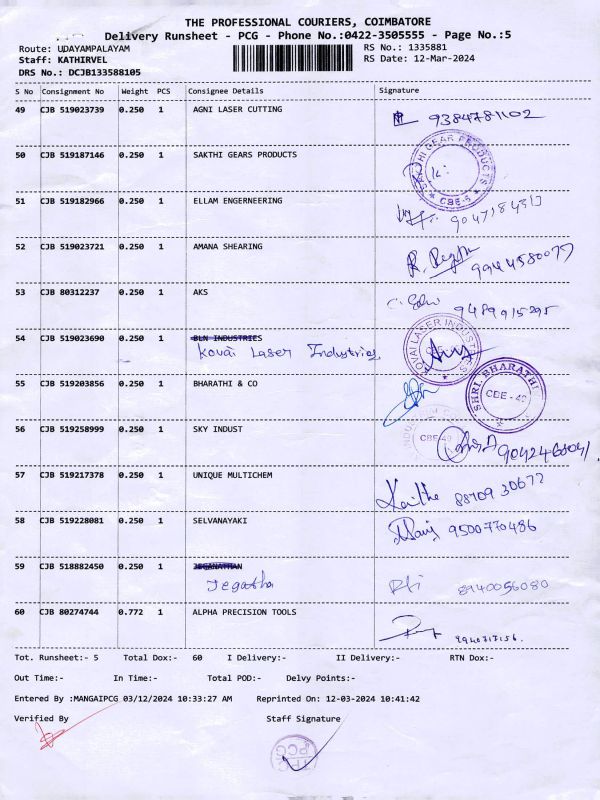 THE PROFESSIONAL COURIERS, COIMBATORE
Delivery Runsheet - PCG - Phone No.:0422-3505555 - Page No.:5
Route: UDAYAMPALAYAM RS No.: 1335881
Staff: KATHIRVEL RS Date: 12-Mar-2024
DRS No.: DCJB133588105
S No Consignment No Weight PCS Consignee Details Signature
49 CJB 519023739 0.250 1 AGNI LASER CUTTING 9384781102
50 CJB 519187146 0.250 1 SAKTHI GEARS PRODUCTS
SAKTHI GEAR PRODUCTS CBE-5
51 CJB 519182966 0.250 1 ELLAM ENGERNEERING
52 CJB 519023721 0.250 1 AMANA SHEARING 9944580077
53 CJB 80312237 0.250 1 AKS 9489915295
54 CJB 519023690 0.250 1 BLN INDUSTRIES
Kovai Laser Industries
KOVAI LASER INDUSTRIES
55 CJB 519203856 0.250 1 BHARATHI & CO
SHRI. BHARATHI CBE - 49
56 CJB 519258999 0.250 1 SKY INDUST
CBE-49
57 CJB 519217378 0.250 1 UNIQUE MULTICHEM Kavitha 8870930677
58 CJB 519228081 0.250 1 SELVANAYAKI 9500770486
59 CJB 518882450 0.250 1 JEGANATHAN
Jegatha 8940056080
60 CJB 80274744 0.772 1 ALPHA PRECISION TOOLS
Tot. Runsheet:- 5 Total Dox:- 60 I Delivery:- II Delivery:- RTN Dox:-
Out Time:- In Time:- Total POD:- Delvy Points:-
Entered By :MANGAIPCG 03/12/2024 10:33:27 AM Reprinted On: 12-03-2024 10:41:42
Verified By Staff Signature
TPC
PCG